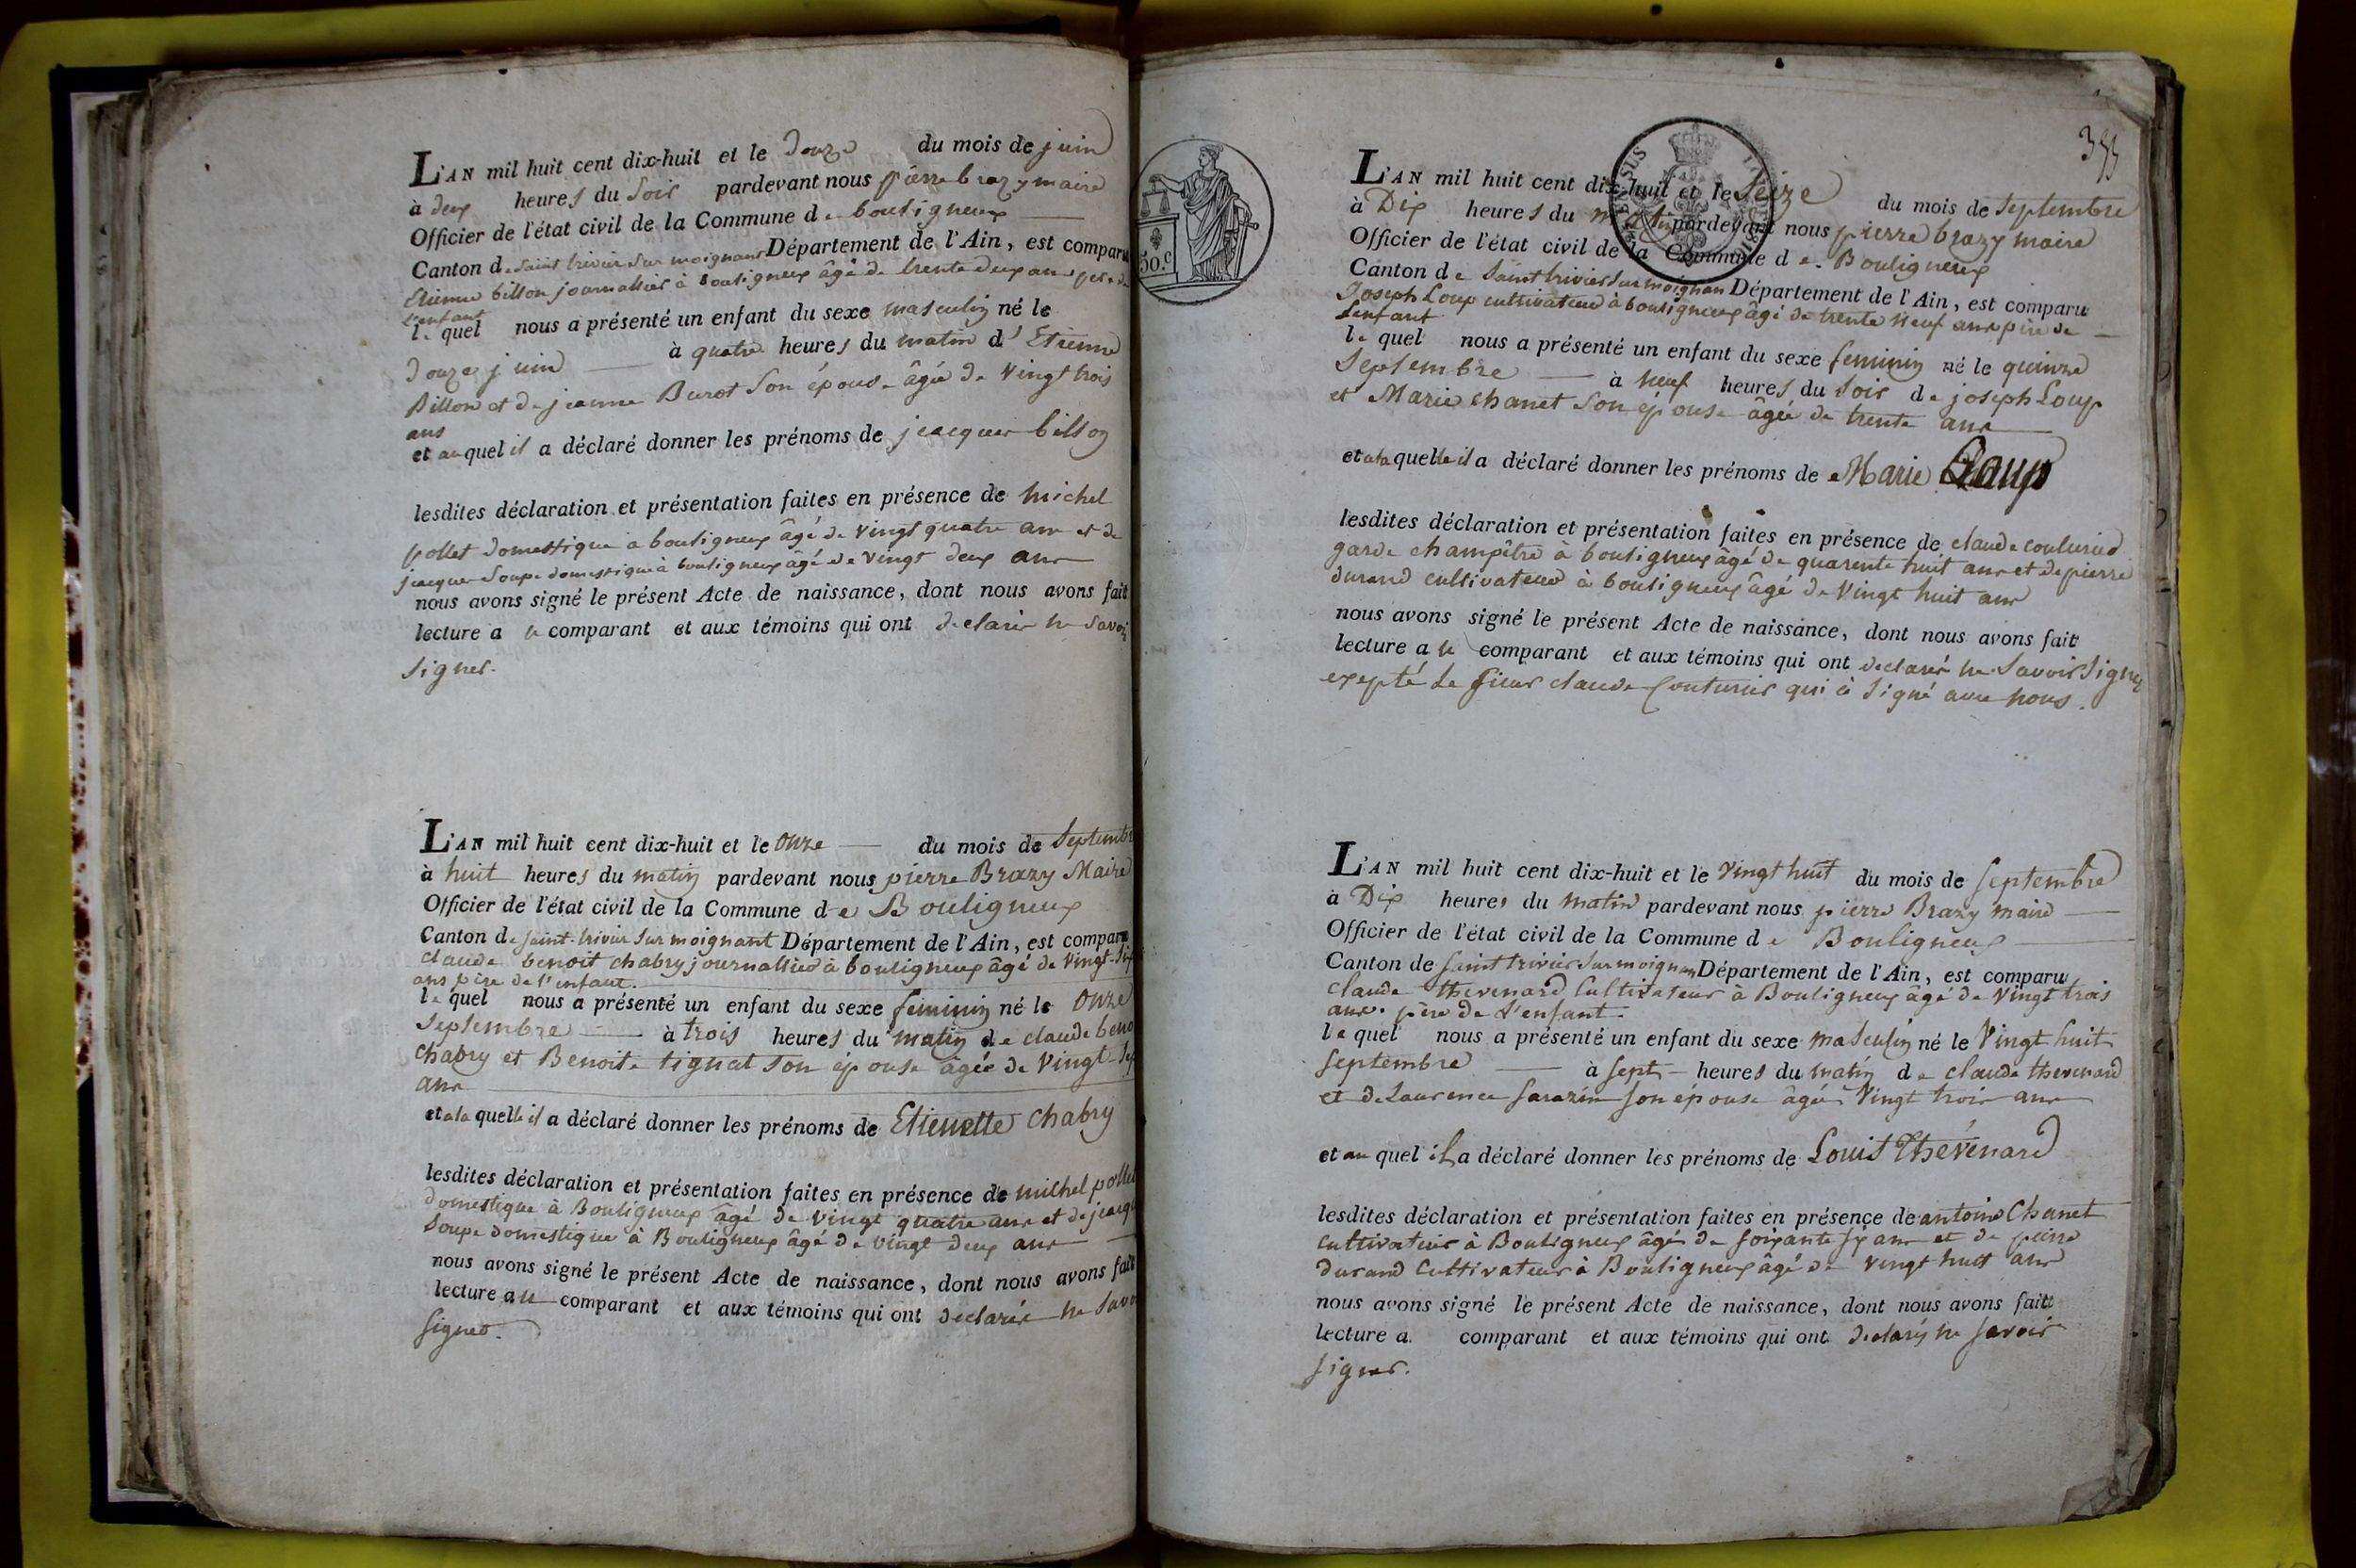 L'AN mil huit cent dix-huit et le douze du mois de juin
à deux heures du soir pardevant nous pierre brazy maire
Officier de l'état civil de la Commune de bouligneux
Canton de saint trivier sur moignans Département de l'Ain, est comparu
Etienne billon journallier à bouligneux âgé de trente deux ans père de
l'enfant
lequel nous a présenté un enfant du sexe masculin né le
douze juin à quatre heures du matin d'Etienne
Billon et de jeanne Burot son épouse âgée de vingt trois
ans
et auquel il a déclaré donner les prénoms de jacques billon
lesdites déclaration et présentation faites en présence de michel
pollet domestique à bouligneux âgé de vingt quatre ans et de
jacques Soupe domestique à bouligneux âgé de vingt deux ans
nous avons signé le présent Acte de naissance, dont nous avons fait
lecture a u comparant et aux témoins qui ont declarér ne savoir
signer.
L'AN mil huit cent dix-huit et le onze du mois de septembre
à huit heures du matin pardevant nous pierre Brazy Maire
Officier de l'état civil de la Commune de Bouligneux
Canton de saint trivier sur moignant Département de l'Ain, est comparu
claude benoit chabry journallier à bouligneux âgé de vingt
ans père de l'enfant.
lequel nous a présenté un enfant du sexe feminin né le onze
septembre à trois heures du matin de claude beno
chabry et Benoite tignat son épouse âgée de vingt
ans
et a la quelle il a déclaré donner les prénoms de Etienette chabry
lesdites déclaration et présentation faites en présence de michel pollet
domestique à Bouligneux âgé de vingt quatre ans et de jacqu
Soupe domestique à Bouligneux âgé de vingt deux ans
nous avons signé le présent Acte de naissance, dont nous avons fait
lecture au comparant et aux témoins qui ont declarér ne savo
signer.
50.c
355
L'AN mil huit cent dix-huit et le seize du mois de septembre
à Dix heures du matin pardevant nous pierre brazy maire
Officier de l'état civil de la Commune de Bouligneux
Canton de saint trivier sur moignan Département de l'Ain, est comparu
Joseph Loup cultivateur à bouligneux âgé de trente neuf ans père de
l'enfant
lequel nous a présenté un enfant du sexe feminin né le quinze
septembre à neuf heures du soir de joseph Loup
et Marie chanet son épouse âgée de trente ans
et a la quelle il a déclaré donner les prénoms de Marie Loup
lesdites déclaration et présentation faites en présence de claude couturier
garde champêtre à bouligneux âgé de quarente huit ans et de pierre
durand cultivateur à bouligneux âgé de vingt huit ans
nous avons signé le présent Acte de naissance, dont nous avons fait
lecture a u comparant et aux témoins qui ont declarér ne savoir signer
expepté le sieur claude Couturier qui à signé avec nous.
L'AN mil huit cent dix-huit et le vingt huit du mois de septembre
à Dix heures du matin pardevant nous pierre Brazy maire
Officier de l'état civil de la Commune de Bouligneux
Canton de saint trivier sur moignan Département de l'Ain, est comparu
claude thevenard Cultivateur à Bouligneux âgé de vingt trois
ans. père de l'enfant.
lequel nous a présenté un enfant du sexe masculin né le vingt huit
septembre à sept heures du matin de claude thevenard
et de Laurence sarazin son épouse âgée vingt trois ans
et au quel il a déclaré donner les prénoms de Louis Thévenard
lesdites déclaration et présentation faites en présence de antoine Chanet
cultivateur à Bouligneux âgé de soixante six ans et de pierre
durand Cultivateur à Bouligneux âgé de vingt huit ans
nous avons signé le présent Acte de naissance, dont nous avons fait
lecture a comparant et aux témoins qui ont declaré ne savoir
signer.